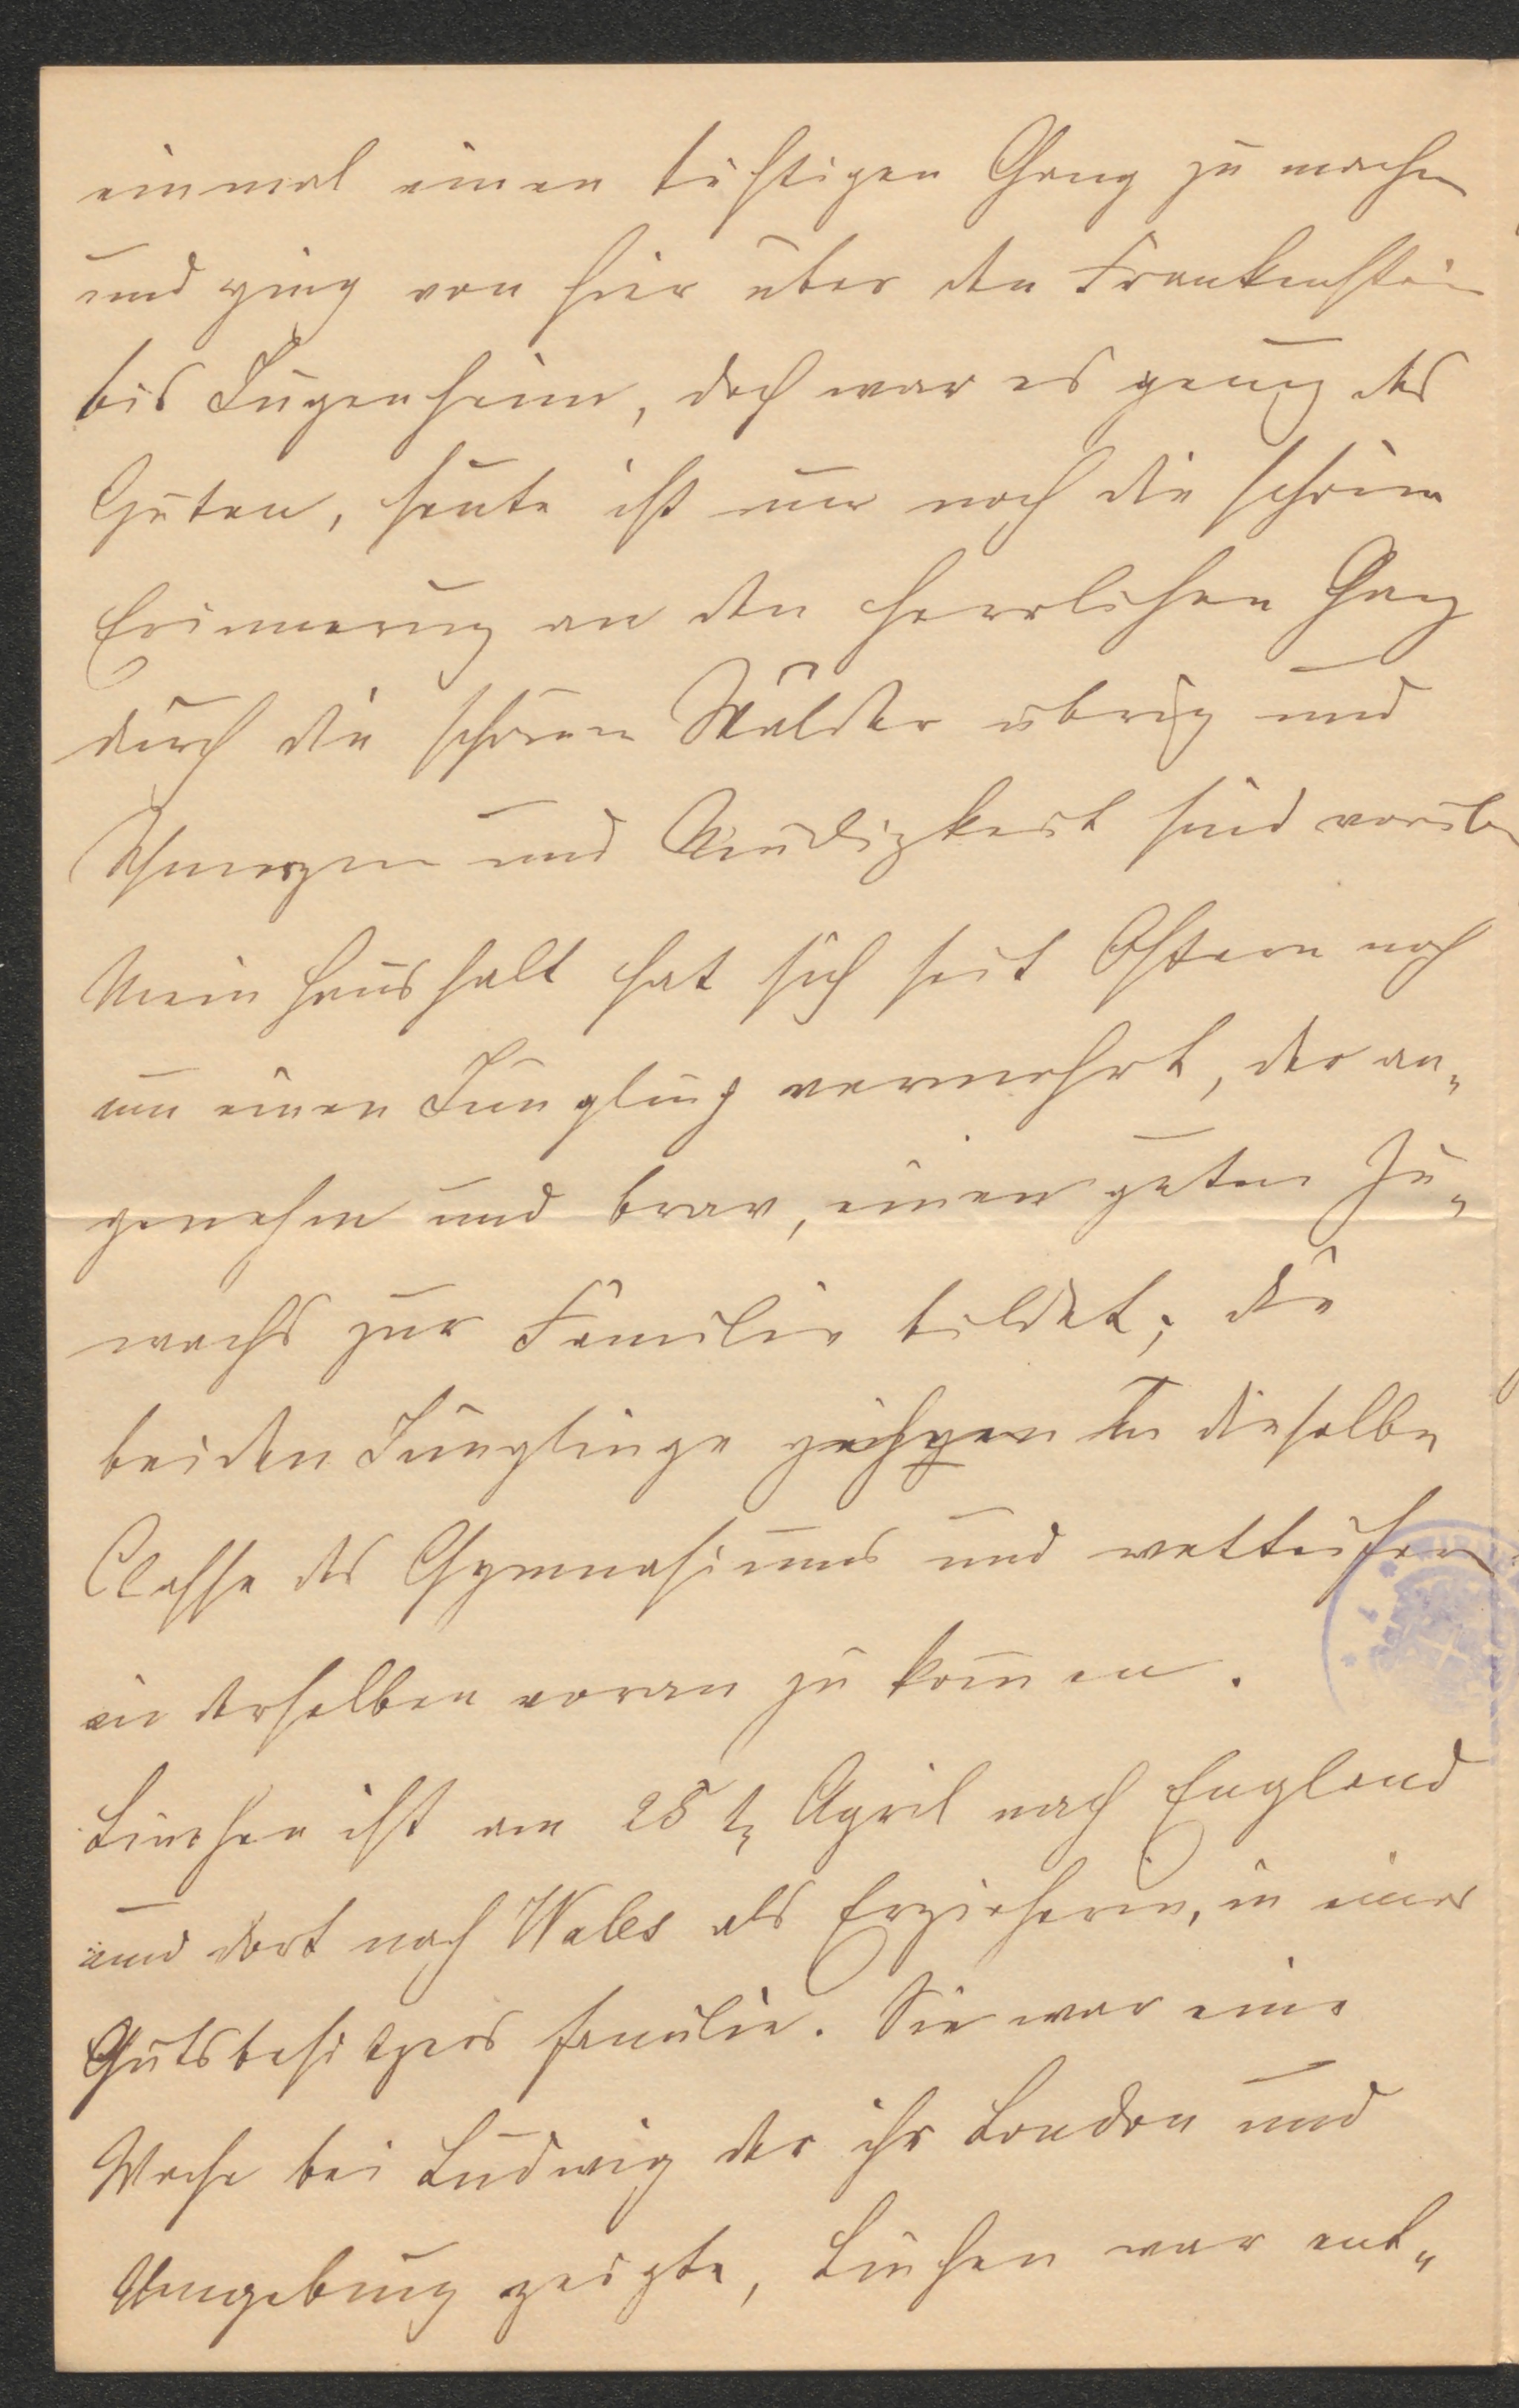 einmal einen tüchtigen Gang zu machen
und ging von hier über den Frankenstein
bis Jugenheim, doch war es genug des
Guten, heute ist nur noch die schöne
Erinnerung an den herrlichen Gang
durch die schönen Wälder übrig und
Schmerzen und Müdigkeit sind vorüber
Mein Haushalt hat sich seit Ostern noch
um einen Jüngling vermehrt, der an„
genehm und brav, einen guten Zu„
wachs zur Familie bildet; die
beiden Jünglinge gehen in dieselbe
Classe des Gymnasiums und wetteifern
in derselben voran zu kommen.
Linchen ist am 25t April nach England
und dort nach Wales als Erzieherin, in einer
Gutsbesitzers familie. Sie war eine
Woche bei Ludwig der ihr London und
Umgebung zeigte, Linchen war ent„